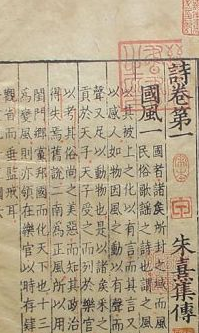 詩卷第一
朱熹集傳
國風一
國者諸侯所封之域而風
民俗歌謠之詩也謂之風
以其被上之化以有言而其言又
以感人如物因風之動以有聲而
聲又足以動物也是以諸侯采之
貢於天子天子受之而列於樂官
以考其俗尚之美惡而知其政治
得失焉舊說二南為正風所以用
閨門鄉黨邦國而化天下也十三
為變風則亦領在樂官以時存肄
觀省而垂監戒耳